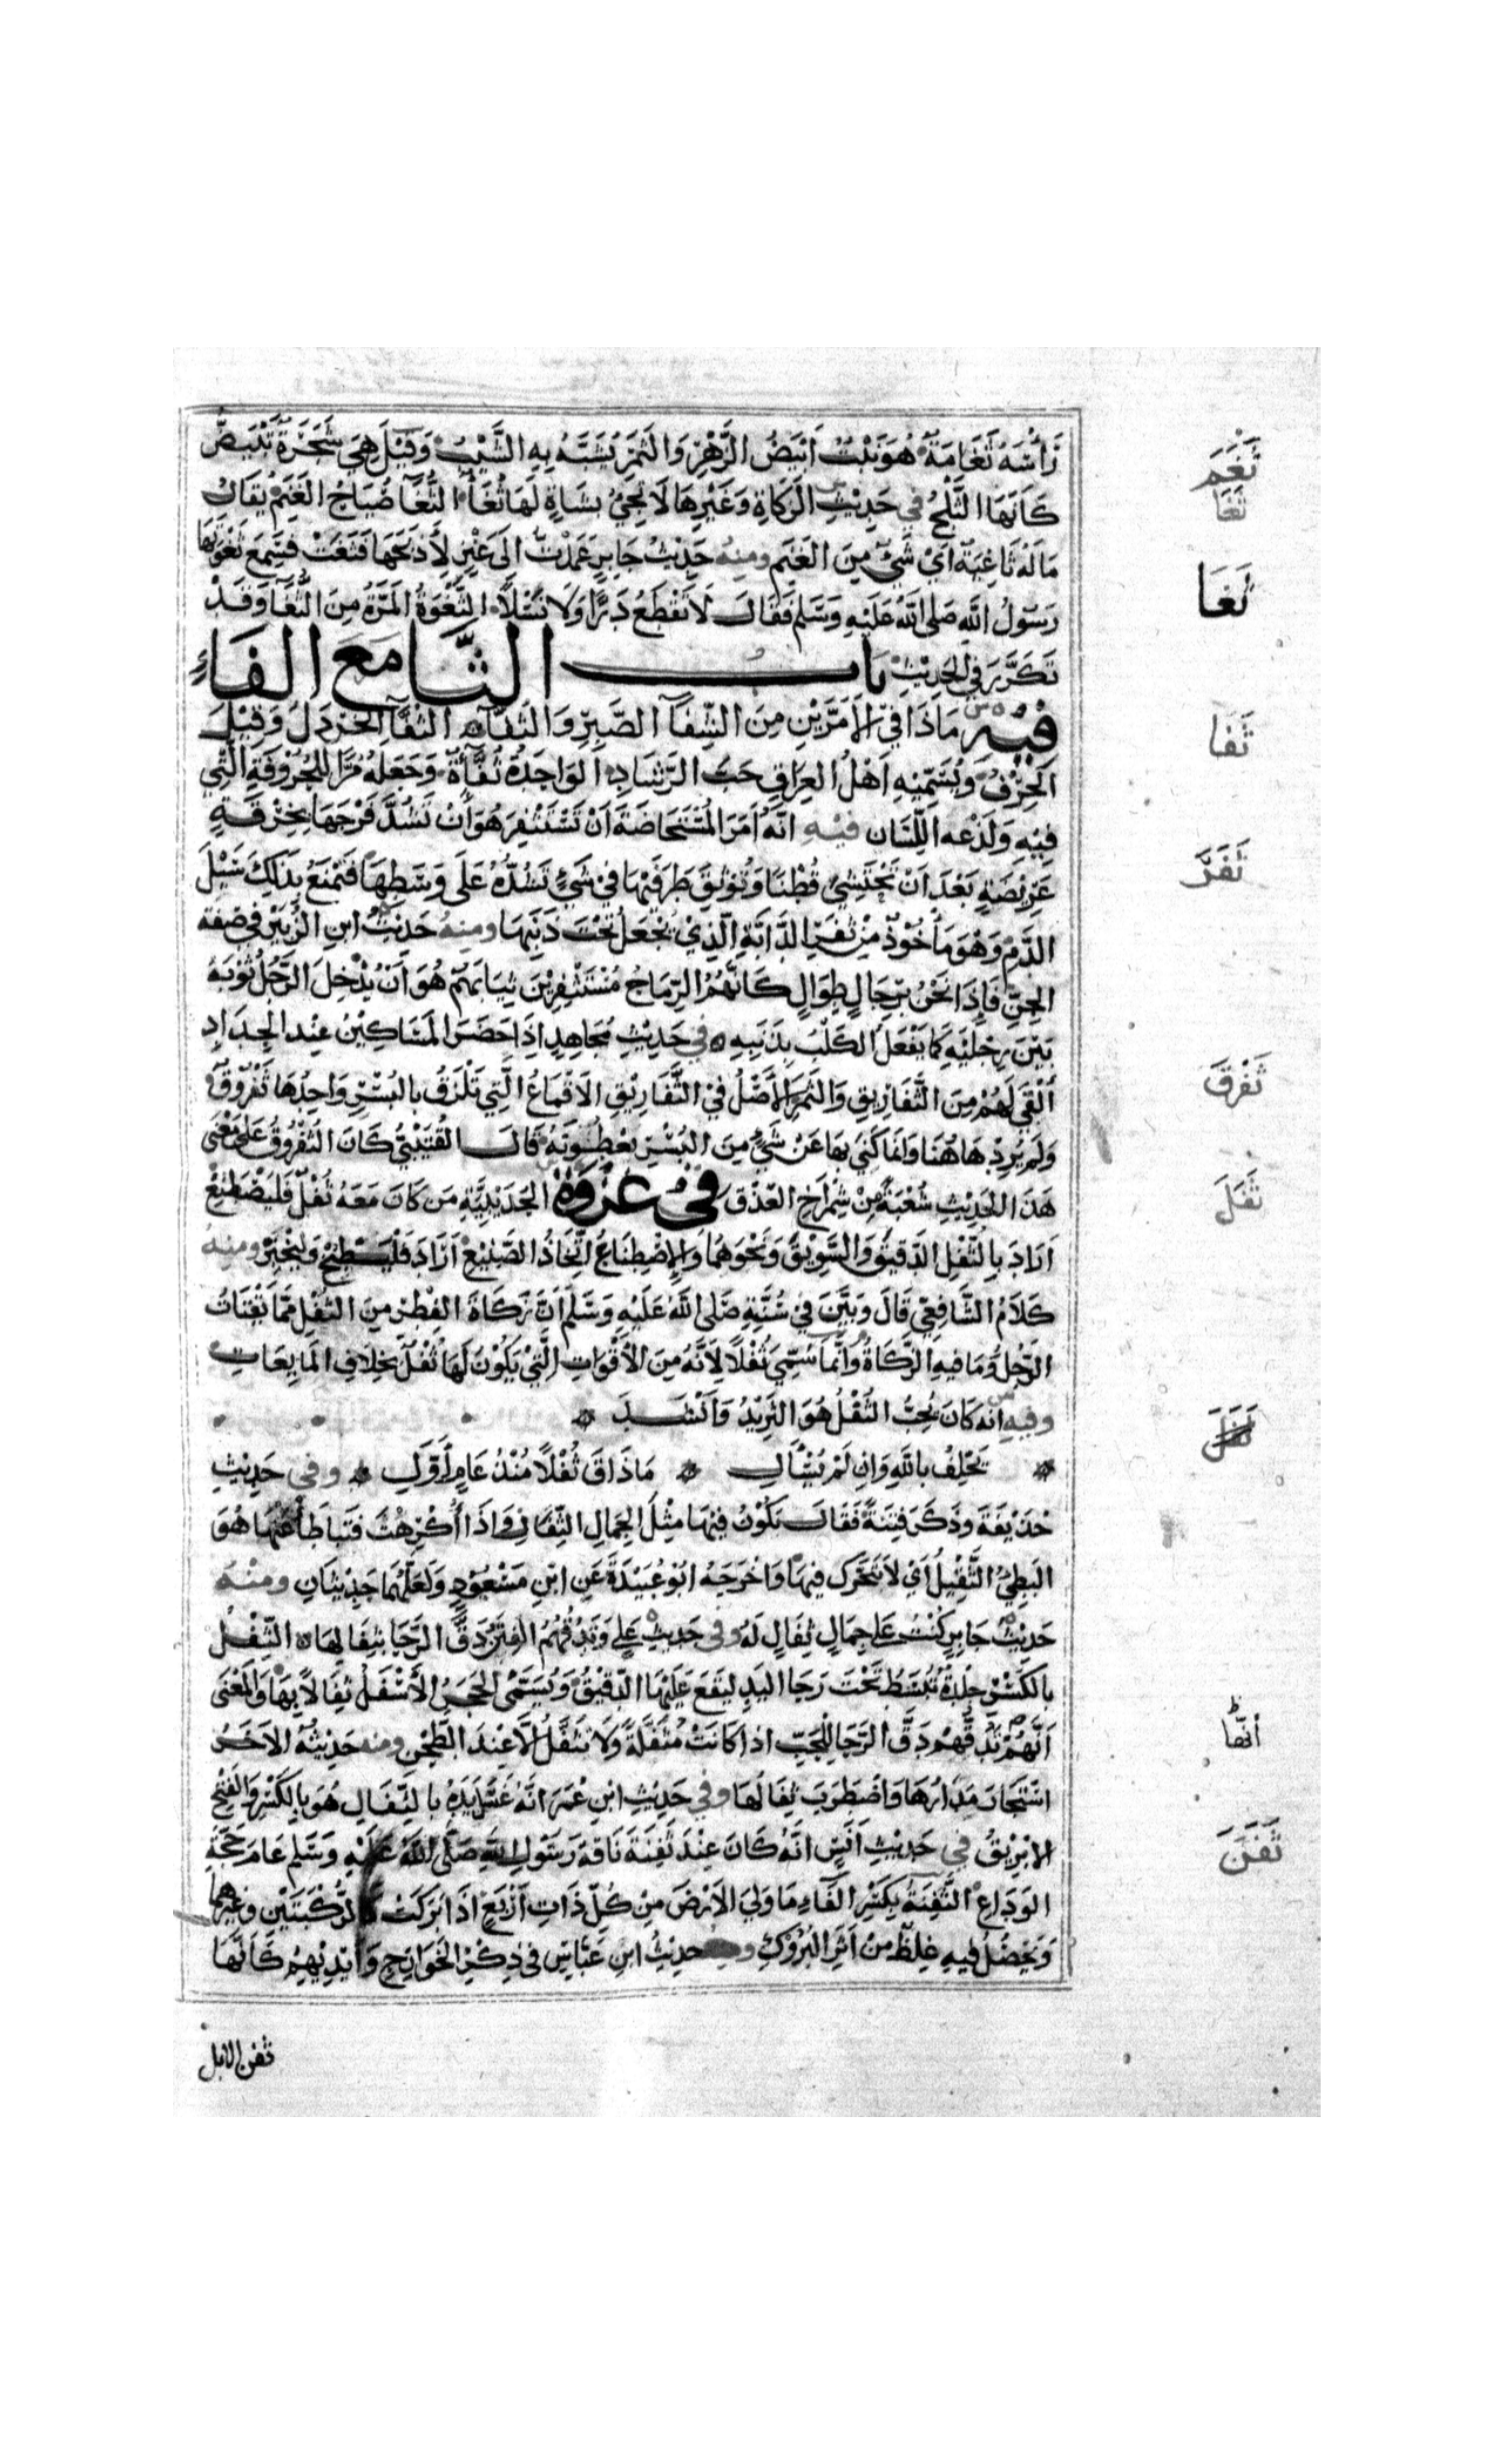 رَأْسَهُ ثَغَامَةٌ هُوَ نَبْتٌ اَبْيَضُ الزَّهْرِ وَالثَّمَرِ يُشَبَّهُ بِهِ الشَّيْبُ وَقِيْلَ هِيَ شَجَرَةٌ تَبْيَضُّ
كَاَنَّهَا الثَّلْجُ في حَدِيْثِ الزَكَاةِ وَغَيْرِهَا لَا تَجِيْءُ بِشَاةٍ لَهَا ثُغَاءٌ الثُّغَاءُ صُيَاحُ الغَنَمِ يُقَالُ
مَا لَهُ ثَاغِيَةٌ اَيْ شَيْءٌ مِنَ الغَنَمِ ومنه حَدِيْثُ جَابِرٍ عَمَدْتُ الى عَنْزٍ لِأَذْبَحَهَا فَثَغَتْ فَسَمِعَ ثَغْوَتَهَا
رَسُوْلُ اللَّهِ صَلى اللَّهُ عَلَيْهِ وَسَلم فَقَالَ لَا تَقْطَعْ دَرًّا وَلَا نَسْلًا الثَّغْوَةُ المَرَّةُ مِنَ الثُّغَاءِ وَقَدْ
تَكَرَّرَ فِي الحَدِيْثِ بَاب الثَّا مَعَ الفَاءِ
فيه مَاذَا فِي الْأَمَرَّيْنِ مِنَ الشِّفَآ الصَّبِرِ وَالثُّفَآءِ الثُّفَّآءُ الخَرْدَلُ وَقِيْلَ
الحُرْفُ وَيُسَمِّيْهِ اَهْلُ العِرَاقِ حَبَّ الرَّشَادِ الوَاحِدَةُ ثُفَّأَةٌ وَجَعَلَهُ مُرًّا لِلحُرُوْفَةِ الَّتِي
فِيْهِ وَلَذْعِهِ اللِّسَان فيه انَّهُ اَمَرَ المُسْتَحَاضَةَ اَنْ تَسْتَثْفِرَ هُوَ اَنْ تَشُدَّ فَرْجَهَا بِخِرْقَةٍ
عَرِيْضَةٍ بَعْدَ اَنْ تَحْتَشِيَ قُطْنًا وَتُوْثِقَ طَرَفَيْهَا فِيْ شَيْءٍ تَشُدُّهُ عَلَى وَسَطِهَا فَتَمْنَعُ بِذَلِكَ سَيْلَ
الدَّمِ وَهْوَ مَأْخُوْذٌ مِنْ ثَفَرِ الدَّابَّةِ الَّذِيْ يُجْعَلُ تَحْتَ ذَنَبِهَا ومنه حَدِيْثُ ابْنِ الزُّبَيْرِ فِي صِفَةِ
الجِنِّ فَاِذَا نَحْنُ بِرِجَالٍ طِوَالٍ كَاَنَّهُمُ الرِّمَاحُ مُسْتَثْفِرِيْنَ ثِيَابَهُمْ هُوَ اَنْ يُدْخِلَ الرَّجُلُ ثَوْبَهُ
بَيْنَ رِجْلَيْهِ كَمَا يَفْعَلُ الكَلْبُ بِذَنَبِهِ في حَدِيْثِ مُجَاهِدٍ اِذَا حَضَرَ المَسَاكِيْنُ عِنْدَ الجِدَادِ
اُلْقِيَ لَهُمْ مِنَ الثَّفَارِيْقِ وَالتَّمْرِ الأَصْلُ فِيْ الثَّفَارِيْقِ الأَقْمَاعُ الَّتِي تَلْزَقُ بِالبُسْرِ وَاحِدُهَا ثُفْرُوْقٌ
وَلَمْ يُرِدْهَا هَاهُنَا وَانَّمَا كَنَى بِهَا عَنْ شَيْءٍ مِنَ البُسْرِ يُعْطَوْنَهُ قَالَ القُتَيْبِيُّ كَانَ الثُّفْرُوقُ عَلَى مَعْنَى
هَذَا الحَدِيْثِ شُعْبَةٌ مِنْ شِمْرَاخِ العِذْق في غَزْوَةِ الحُدَيْبِيَّةِ مَن كَانَ مَعَهُ ثُفْلٌ فَليَصْطَنِعْ
اَرَادَ بِالثُّفْلِ الدَّقِيْقَ وَالسَّوِيْقَ وَنَحْوَهُمَا وَالاِصْطِنَاعُ اتِّخَاذُ الصَّنِيْعِ اَرَادَ فَلْيَطْبَخْ وَلْيَخْتَبِزْ ومنه
كَلَامُ الشَّافِعِيِّ قَالَ وَبَيَّنَ فِيْ سُنَّتِهِ صَلى اللَّهُ عَلَيْهِ وَسَلَّمَ اَنَّ زَكَاةَ الفِطْرِ مِنَ الثُّفْلِ مِمَّا يَقْتَاتُ
الرَّجُلُ وَمَا فِيهِ الزَّكَاةُ وَاَنَّمَا سُمِّيَ ثُفْلًا لِاَنَّهُ مِنَ الأَقْوَاتِ الَّتِيْ يَكُوْنُ لَهَا ثُفْلٌ بِخِلَافِ المَايِعَاتِ
وفيه انه كَانَ يُحِبُّ الثُّفْلَ هُوَ الثَّرِيْدُ وَاَنْشَدَ
يَحْلِفُ بِاللَّهِ وَاِن لَمْ يُسْأَلِ مَا ذَاقَ ثُفْلًا مُنْذُ عَامٍ اَوَّلِ وفي حَدِيْثِ
حُذَيْفَةَ وَذَكَرَ فِتْنَةً فَقَالَ تَكُوْنُ فِيْهَا مِثْلَ الجَمَلِ الثَّفَالِ وَاِذَا اُكْرِهْتَ فَتَبَاطَأْ عَنْهَا هُوَ
البَطِيُّ الثَّقِيْلُ اَيْ لَا تَتَحَرَّك فِيْهَا وَاخْرَجَهُ ابُوْ عُبَيْدَةَ عَنِ ابْنِ مَسْعُوْدٍ وَلَعَلَّهُمَا حَدِيْثَانِ ومنه
حَدِيْثُ جَابِرٍ كُنْتُ عَلَى جَمَلٍ ثَفَالٍ لَهُ وفي حَدِيْثِ عَلِيٍ وَتَدُقُّهُمُ الفِتَنُ دَقَّ الرَّحَا بِثِفَالِهَا الثِّفْلُ
بِالكَسْرِ جِلْدَةٌ تُبْسَطُ تَحْتَ رَحَا اليَدِ لِيَقَعَ عَلَيْهَا الدَّقِيْقُ وَيُسَمَّى الحَجَرُ الأَسْفَلُ ثِفَالًا بِهَا وَالمَعْنَى
اَنَّهَا تَدُقُّهُمْ دَقَّ الرَّحَا لِلحَبِّ اذا كَانَتْ مُثَفَّلَةً وَلَا تُثَفَّلُ اِلَّا عِنْدَ الطَّحْنِ ومنه حَدِيْثُهُ الآخَرُ
اسْتَحَارَ مَدَارُهَا وَاضْطَرَبَ ثِفَالُهَا وفي حَدِيْثِ ابْنِ عُمَرَ اَنَّهُ غَسَلَ يَدَيْهِ بِالثِّفَالِ هُوَ بِالكَسْرِ وَالفَتْحِ
الإبْرِيْقُ في حَدِيْثِ اَنَسٍ اَنَّهُ كَانَ عِنْدَ ثَفِنَةِ نَاقَةِ رَسُوْلِ اللَّهِ صَلَّى اللَّهُ عَلَيْهِ وَسَلم عَامَ حَجَّةِ
الوَدَاعِ الثَّفِنَةُ بِكَسْرِ الفَاءِ مَا وَلِيَ الأَرْضَ مِنْ كُلِّ ذَاتِ اَرْبَعٍ اذَا بَرَكَتْ كَالرُّكْبَتَيْنِ وَغَيْرِهِمَا
وَيَحْصُلُ فِيْهِ غِلَظٌ مِنْ اَثَرِ البُرُوْكِ حَدِيْثُ ابْنِ عَبَّاسٍ فِي ذِكْرِ الخَوَارِجِ وَاَيْدِيْهِمْ كَاَنَّهَا
ثفن الابل
ثَغَمَ
ثَغَا
ثَغَا
ثَفَا
ثَفَرَ
ثَفْرَقَ
ثَفَلَ
اَنَّهَا
ثَفَنَ